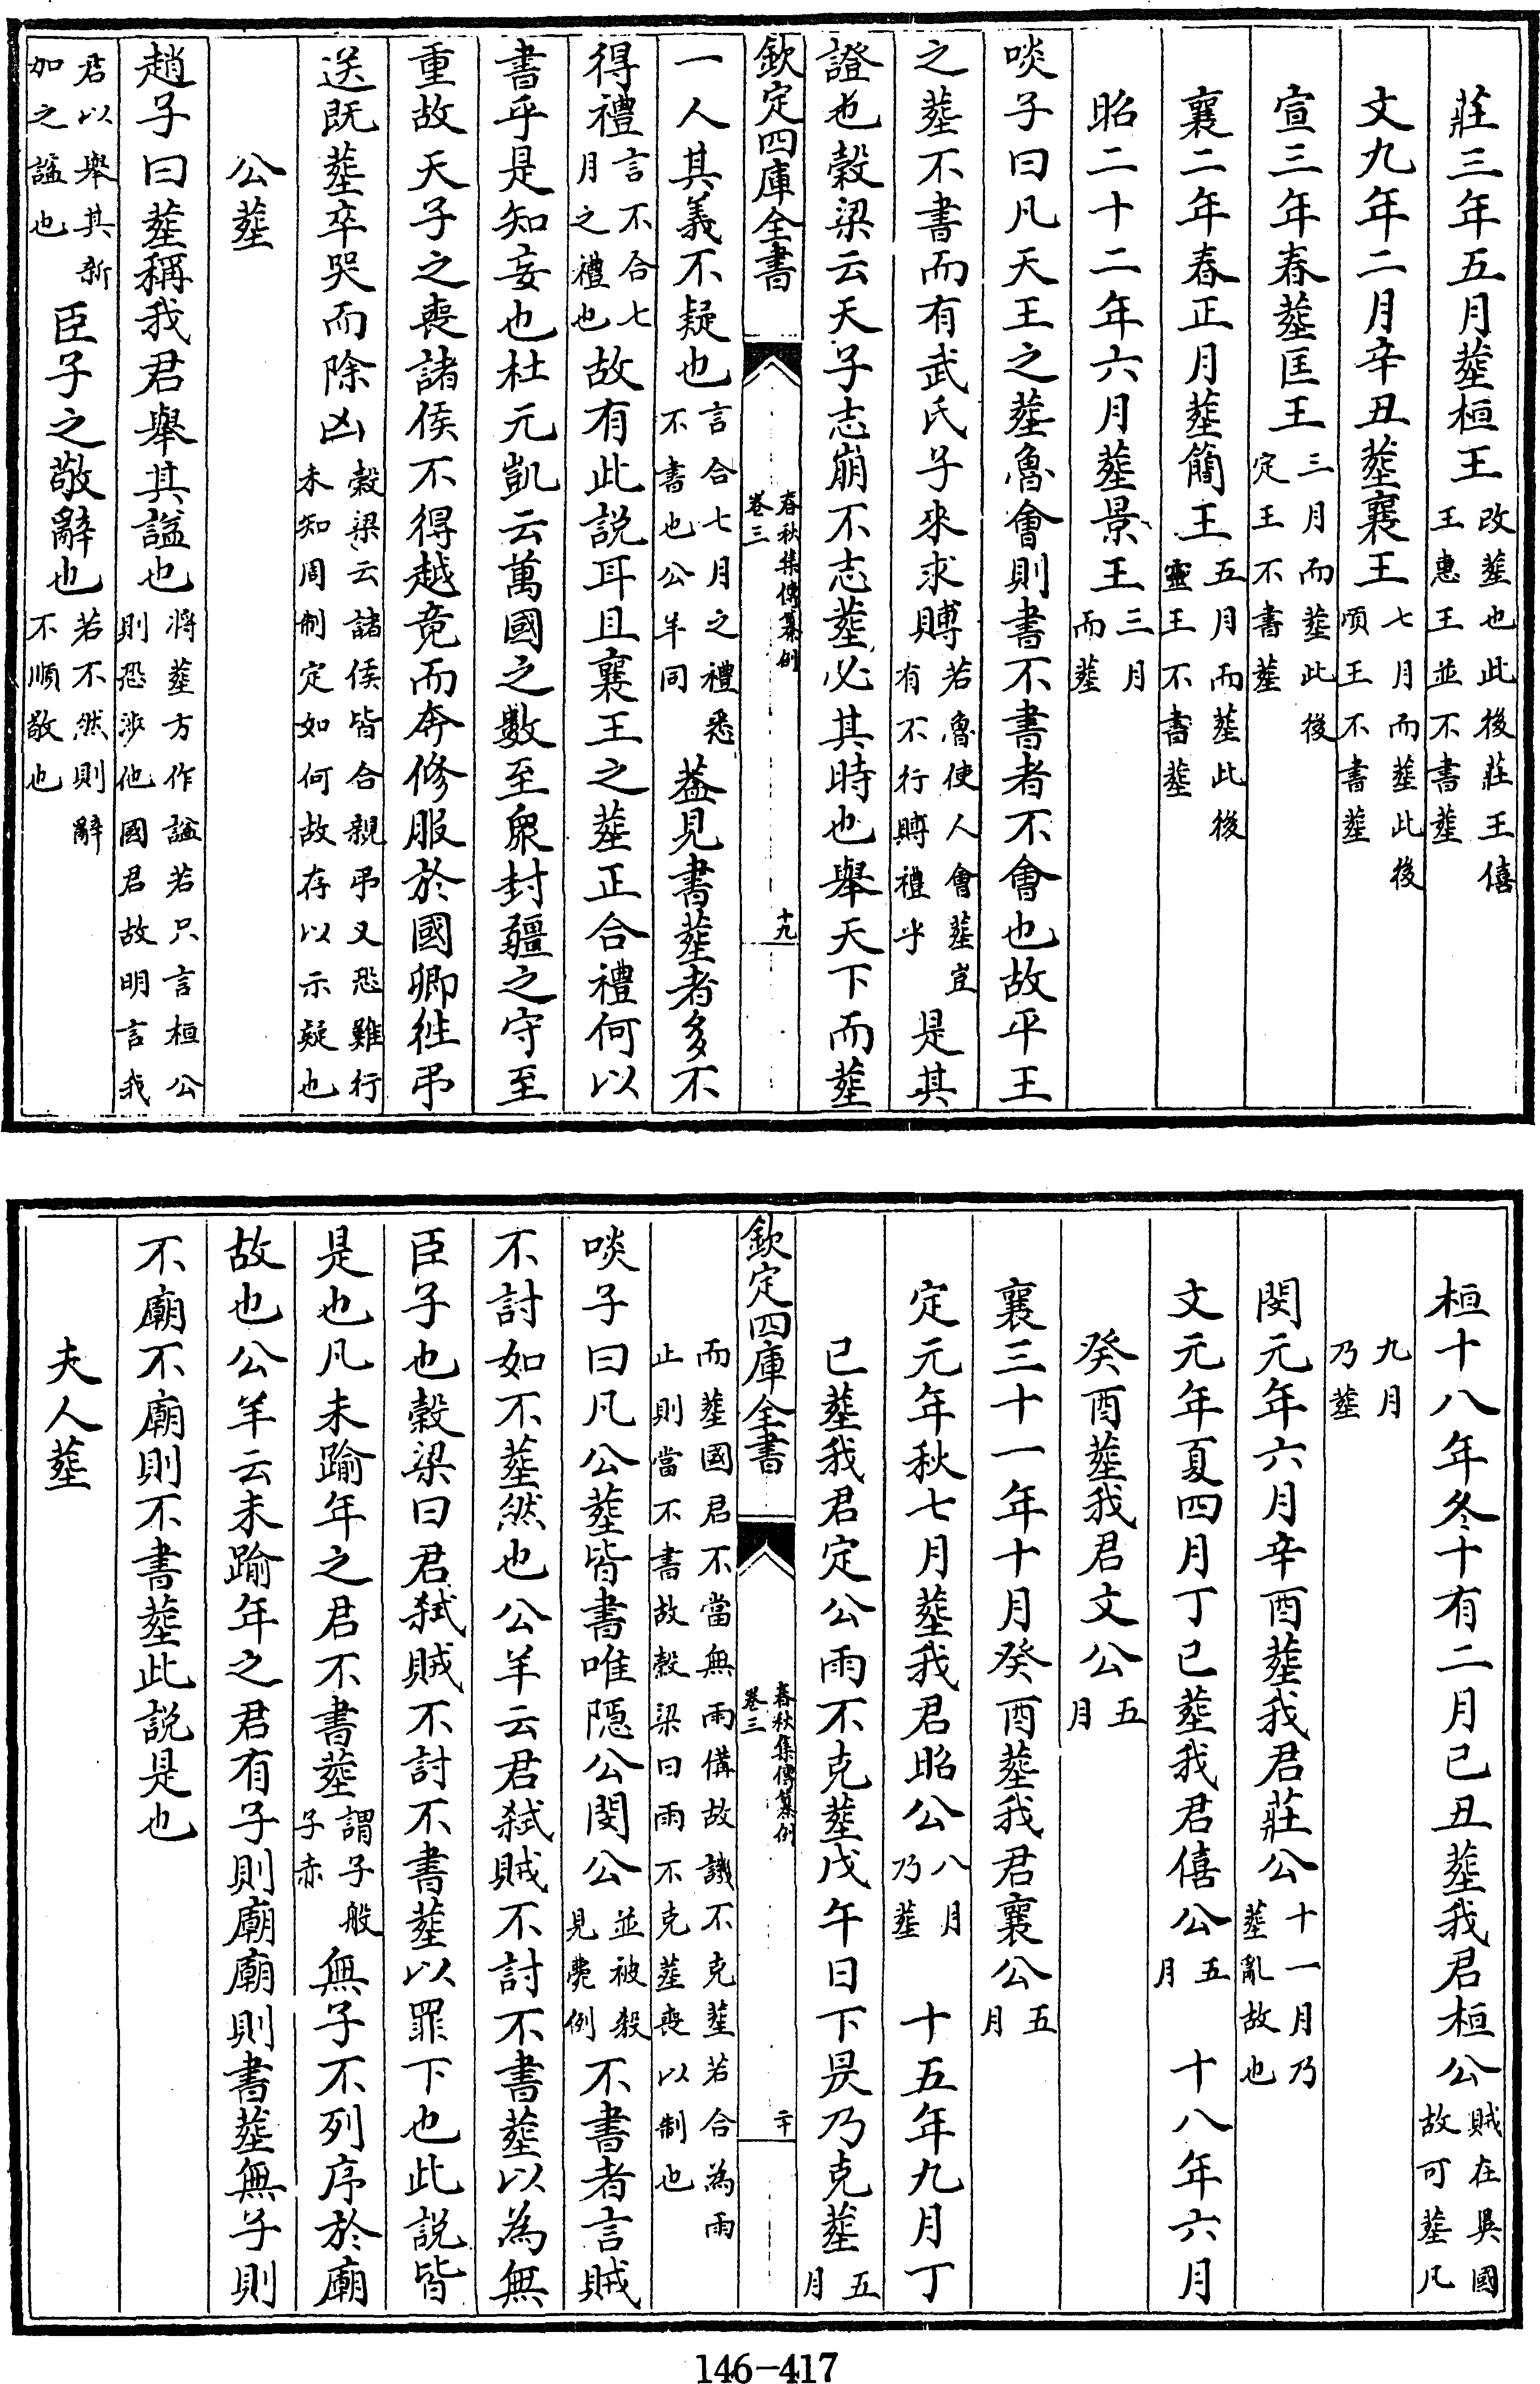 莊三年五月塟桓王改塟也此後莊王僖王惠王並不書塟
文九年二月辛丑塟襄王七月而塟此後頃王不書塟
宣三年春塟匡王三月而塟此後定王不書塟
襄二年春正月塟簡王五月而塟此後靈王不書塟
昭二十二年六月塟景王三月而塟
啖子曰凡天王之塟魯會則書不書者不會也故平王
之塟不書而有武氏子來求賻若魯使人會塟豈有不行賻禮乎是其
證也穀梁云天子志崩不志塟必其時也舉天下而塟
欽定四庫全書 春秋集傳纂例 卷三 十九
一人其義不疑也言合七月之禮悉不書也公羊同葢見書塟者多不
得禮言不合七月之禮也故有此説耳且襄王之塟正合禮何以
書乎是知妄也杜元凱云萬國之數至衆封疆之守至
重故天子之喪諸侯不得越竟而奔修服於國卿徃弔
送既塟卒哭而除凶穀梁云諸侯皆合親弔又恐難行未知周制定如何故存以示疑也
公塟
趙子曰塟稱我君舉其諡也將塟方作諡若只言桓公則恐渉他國君故明言我
君以舉其新加之諡也臣子之敬辭也若不然則辭不順敬也
桓十八年冬十有二月己丑塟我君桓公賊在吳國故可塟凡
九月乃塟
閔元年六月辛酉塟我君莊公十一月乃塟亂故也
文元年夏四月丁巳塟我君僖公五月 十八年六月
癸酉塟我君文公五月
襄三十一年十月癸酉塟我君襄公五月
定元年秋七月塟我君昭公八月乃塟 十五年九月丁
巳塟我君定公雨不克塟戊午日下昃乃克塟五月
欽定四庫全書 春秋集傳纂例 卷三 二十
而塟國君不當無雨備故譏不克塟若合為雨止則當不書故穀梁曰雨不克塟喪以制也
啖子曰凡公塟皆書唯隠公閔公並被殺見薨例不書者言賊
不討如不塟然也公羊云君弑賊不討不書塟以為無
臣子也穀梁曰君弑賊不討不書塟以罪下也此説皆
是也凡未踰年之君不書塟謂子般子赤無子不列序於廟
故也公羊云未踰年之君有子則廟廟則書塟無子則
不廟不廟則不書塟此説是也
夫人塟
146-417